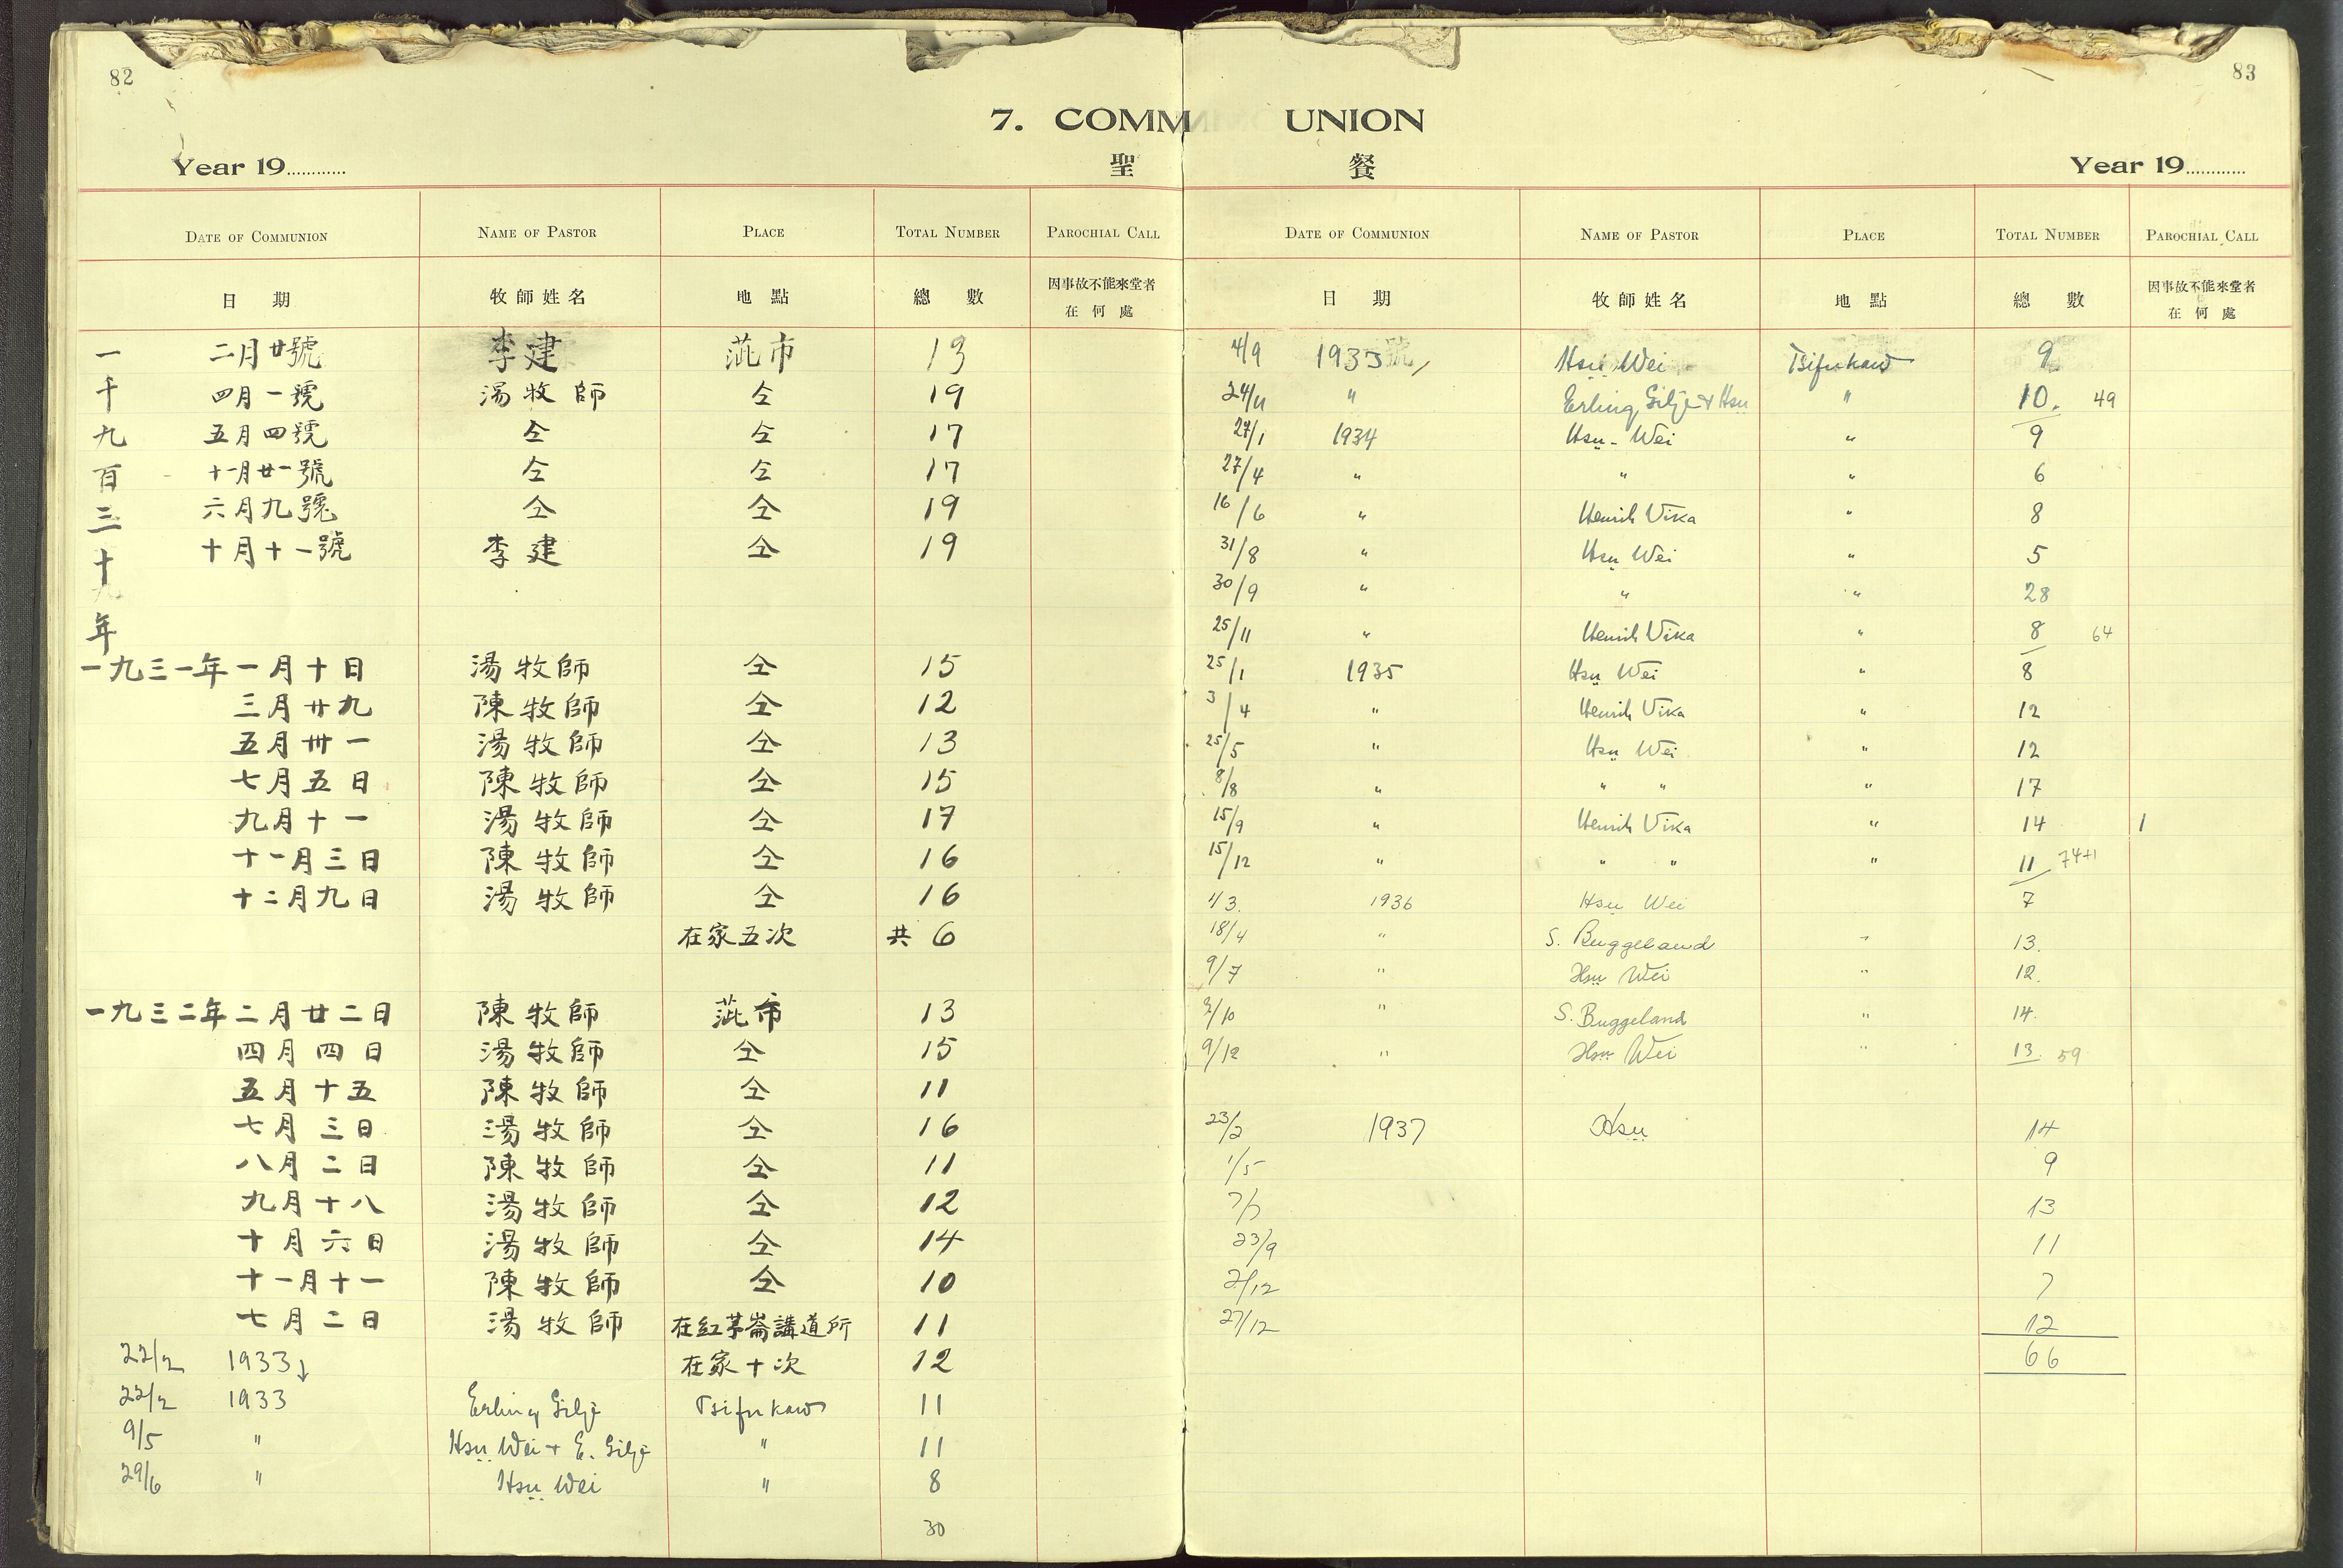 82
7. COMM
Year 19............
聖
DATE OF COMMUNION NAME OF PASTOR PLACE TOTAL NUMBER PAROCHIAL CALL
日期 牧師姓名 地點 總數 因事故不能來堂者在何處
一千九百三十年
二月廿號 李建 茈市 13
四月一號 湯牧師 仝 19
五月四號 仝 仝 17
十一月廿一號 仝 仝 17
六月九號 仝 仝 19
十月十一號 李建 仝 19
一九三一年一月十日 湯牧師 仝 15
三月廿九 陳牧師 仝 12
五月卅一 湯牧師 仝 13
七月五日 陳牧師 仝 15
九月十一 湯牧師 仝 17
十一月三日 陳牧師 仝 16
十二月九日 湯牧師 仝 16
在家五次 共 6
一九三二年二月廿二日 陳牧師 茈市 13
四月四日 湯牧師 仝 15
五月十五 陳牧師 仝 11
七月三日 湯牧師 仝 16
八月二日 陳牧師 仝 11
九月十八 湯牧師 仝 12
十月六日 湯牧師 仝 14
十一月十一 陳牧師 仝 10
七月二日 湯牧師 在紅茅崙講道所 11
22/2 1933 在家十次 12
22/2 1933 Erling Gilje Tsifukow 11
9/5 " Hsü Wei + E. Gilje " 11
29/6 " Hsü Wei " 8
30
83
UNION
餐
Year 19............
DATE OF COMMUNION NAME OF PASTOR PLACE TOTAL NUMBER PAROCHIAL CALL
日期 牧師姓名 地點 總數 因事故不能來堂者在何處
4/9 1933 Hsü Wei Tsifukow 9
24/11 " Erling Gilje + Hsü " 10. 49
27/1 1934 Hsü-Wei " 9
27/4 " " " 6
16/6 " Henrik Vika " 8
31/8 " Hsü Wei " 5
30/9 " " " 28
25/11 " Henrik Vika " 8 64
25/1 1935 Hsü Wei " 8
3/4 " Henrik Vika " 12
25/5 " Hsü Wei " 12
8/8 " " " " 17
15/9 " Henrik Vika " 14 1
15/12 " " " " 11 74+1
4/3. 1936 Hsü Wei 7
18/4 " S. Buggeland " 13.
9/7 " Hsü Wei " 12.
2/10 " S. Buggeland " 14.
9/12 " Hsü Wei " 13. 59
23/2 1937 Hsü 14
1/5 9
7/7 13
23/9 11
2/12 7
27/12 12
66